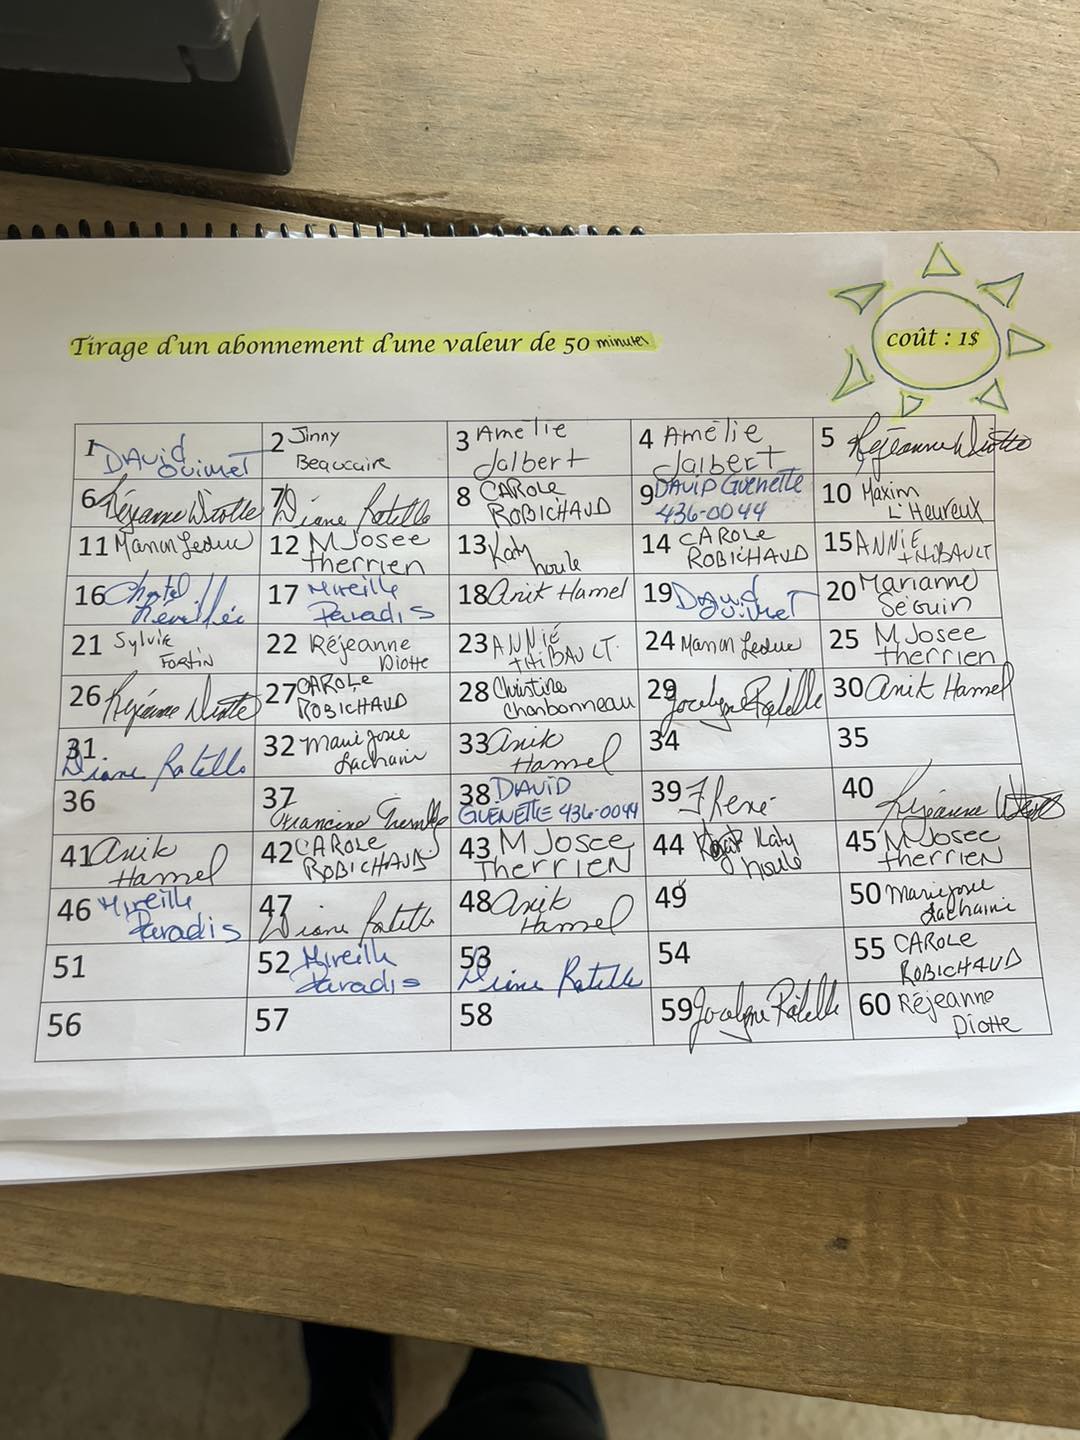 Tirage d'un abonnement d'une valeur de 50 minutes
coût : 1$
1 David Ouimet
2 Jinny Beaucaire
3 Amélie Jalbert
4 Amélie Jalbert
5 Réjeanne Diotte
6 Réjeanne Diotte
7 Diane Ratelle
8 CAROLE ROBICHAUD
9 DAVID GUENETTE 436-0044
10 Maxim L'Heureux
11 Manon Leduc
12 M Josee therrien
13 Katy houle
14 CAROLE ROBICHAUD
15 ANNIE tHiBAULT
16
17 Mireille Paradis
18 Anik Hamel
19 David Ouimet
20 Marianne Séguin
21 Sylvie Fortin
22 Réjeanne Diotte
23 ANNIE tHiBAULT
24 Manon Leduc
25 M Josee therrien
26 Réjeanne Diotte
27 CAROLE ROBICHAUD
28 Christine Charbonneau
29 Jocelyne Ratelle
30 Anik Hamel
31 Diane Ratelle
32 Marie Josée Lachaine
33 Anik Hamel
34
35
36
37 Francine Tremblay
38 DAVID GUENETTE 436-0044
39 F René
40 Réjeanne Diotte
41 Anik Hamel
42 CAROLE ROBICHAUD
43 M Josee therrien
44 Katy houle
45 M Josee therrien
46 Mireille Paradis
47 Diane Ratelle
48 Anik Hamel
49
50 Marie Josée Lachaine
51
52 Mireille Paradis
53 Diane Ratelle
54
55 CAROLE ROBICHAUD
56
57
58
59 Jocelyne Ratelle
60 Réjeanne Diotte